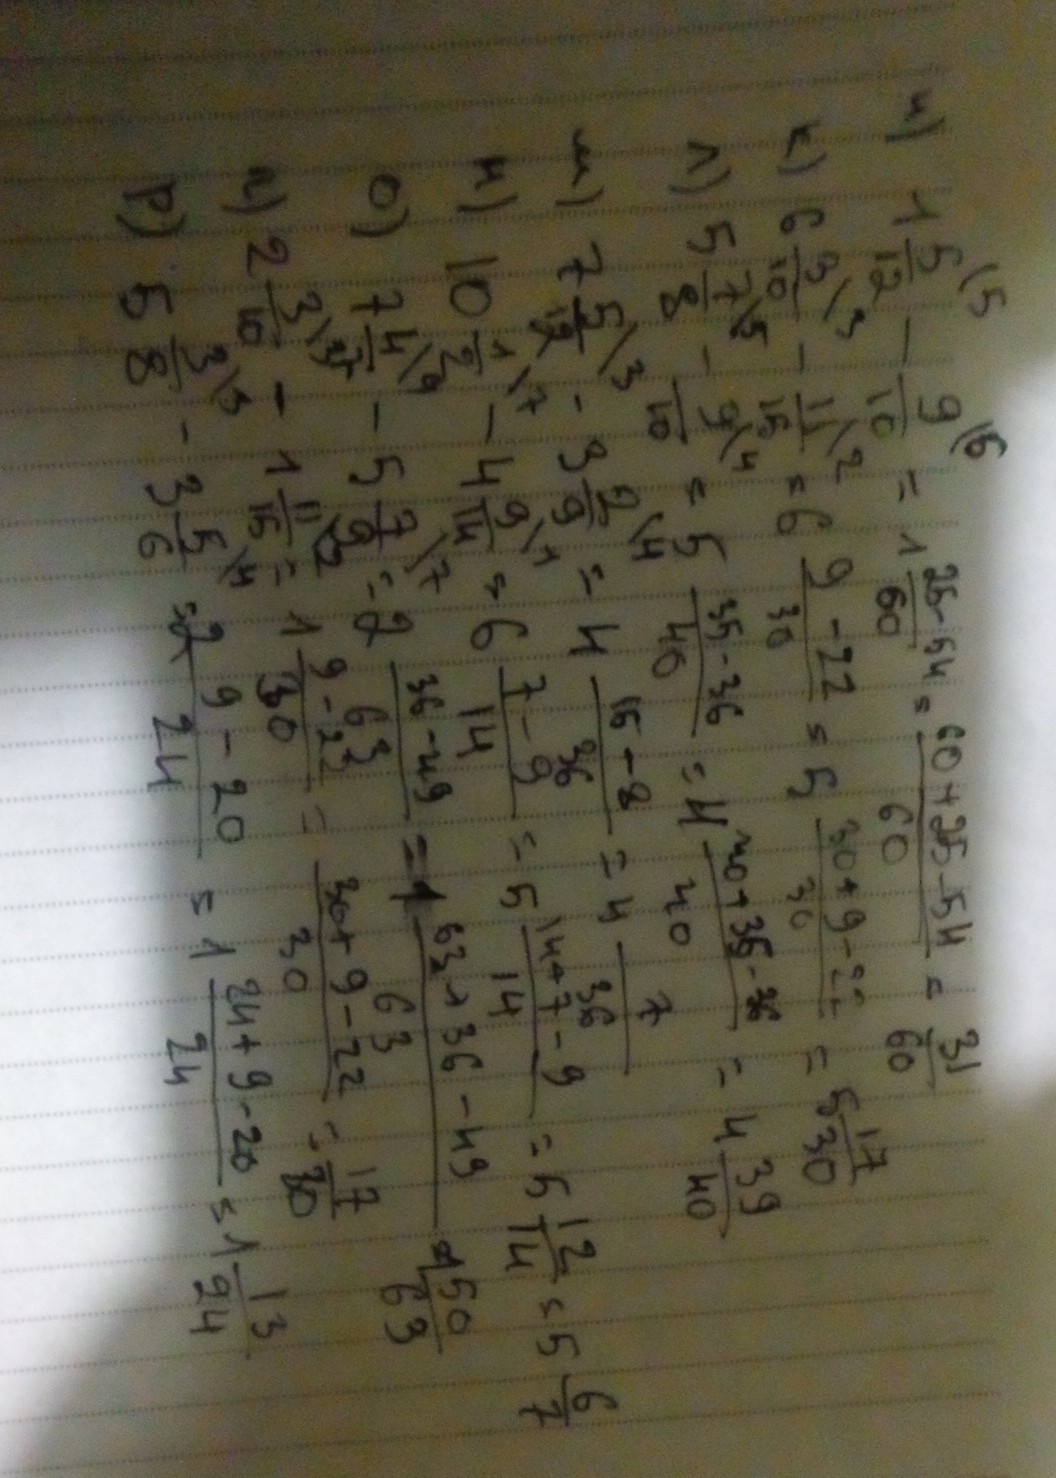 и) 1 5/12 \5 − 9/10 \6 = 1 (25-54)/60 = (60+25-54)/60 = 31/60
к) 6 3/10 \3 − 11/15 \2 = 6 (9-22)/30 = 5 (30+9-22)/30 = 5 17/30
л) 5 7/8 \5 − 9/10 \4 = 5 (35-36)/40 = 4 (40+35-36)/40 = 4 39/40
м) 7 5/12 \3 - 3 2/9 \4 = 4 (15-8)/36 = 4 7/36
н) 10 1/2 \7 − 4 9/14 \1 = 6 (7-9)/14 = 5 (14+7-9)/14 = 5 12/14 = 5 6/7
о) 7 4/7 \9 − 5 7/9 \7 = 2 (36-49)/63 = 1 (63+36-49)/63 = 1 50/63
п) 2 3/10 \3 − 1 11/15 \2 = 1 (9-22)/30 = (30+9-22)/30 = 17/30
р) 5 3/8 \3 - 3 5/6 \4 = 2 (9-20)/24 = 1 (24+9-20)/24 = 1 13/24